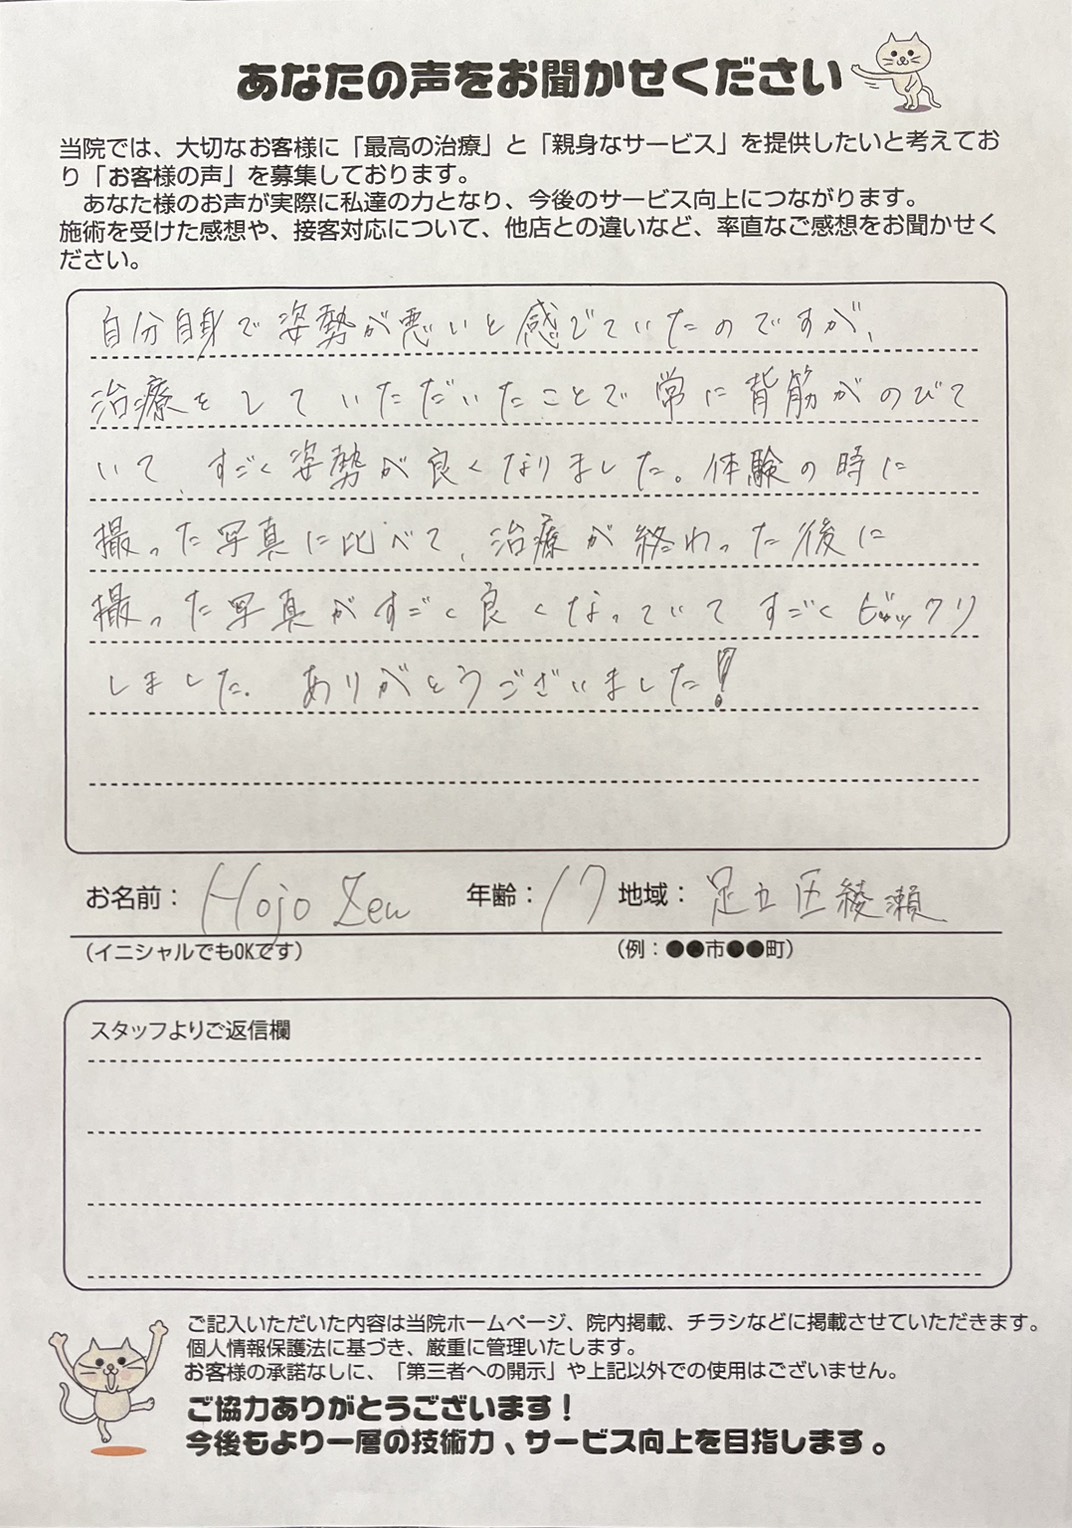 あなたの声をお聞かせください
当院では、大切なお客様に「最高の治療」と「親身なサービス」を提供したいと考えてお
り「お客様の声」を募集しております。
あなた様のお声が実際に私達の力となり、今後のサービス向上につながります。
施術を受けた感想や、接客対応について、他店との違いなど、率直なご感想をお聞かせく
ださい。
自分自身で姿勢が悪いと感じていたのですが、
治療をしていただいたことで常に背筋がのびて
いて、すごく姿勢が良くなりました。体験の時に
撮った写真に比べて、治療が終わった後に
撮った写真がすごく良くなっていてすごくビックリ
しました。ありがとうございました!
お名前: Hojo Zen 年齢: 17 地域: 足立区綾瀬
(イニシャルでもOKです) (例:●●市●●町)
スタッフよりご返信欄
ご記入いただいた内容は当院ホームページ、院内掲載、チラシなどに掲載させていただきます。
個人情報保護法に基づき、厳重に管理いたします。
お客様の承諾なしに、「第三者への開示」や上記以外での使用はございません。
ご協力ありがとうございます!
今後もより一層の技術力、サービス向上を目指します。